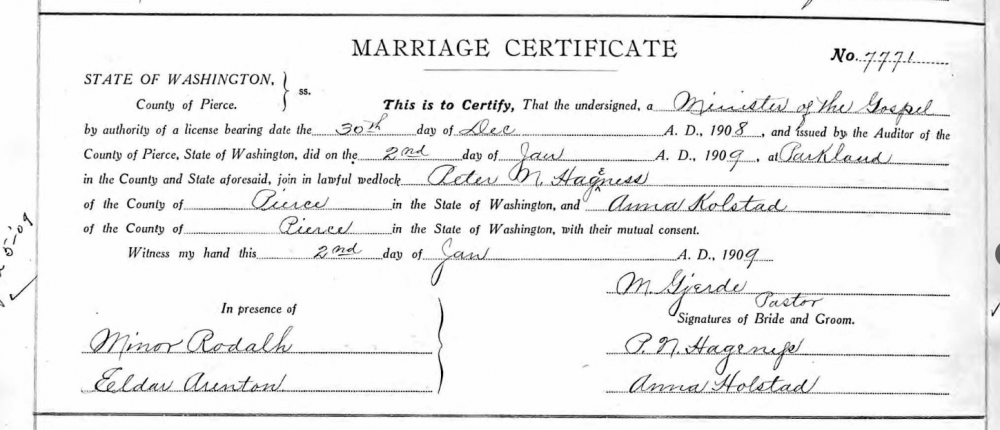 MARRIAGE CERTIFICATE
No. 7771
STATE OF WASHINGTON,
County of Pierce. ss.
This is to Certify, That the undersigned, a Minister of the Gospel
by authority of a license bearing date the 30th day of Dec A. D., 1908, and issued by the Auditor of the
County of Pierce, State of Washington, did on the 2nd day of Jan A. D., 1909, at Parkland
in the County and State aforesaid, join in lawful wedlock Peter N. Hageness
of the County of Pierce in the State of Washington, and Anna Kolstad
of the County of Pierce in the State of Washington, with their mutual consent.
Witness my hand this 2nd day of Jan A. D., 1909
M. Gjerde
Pastor
In presence of
Signatures of Bride and Groom.
Minor Rodalh
P. N. Hageness
Eldar Arenton
Anna Holstad